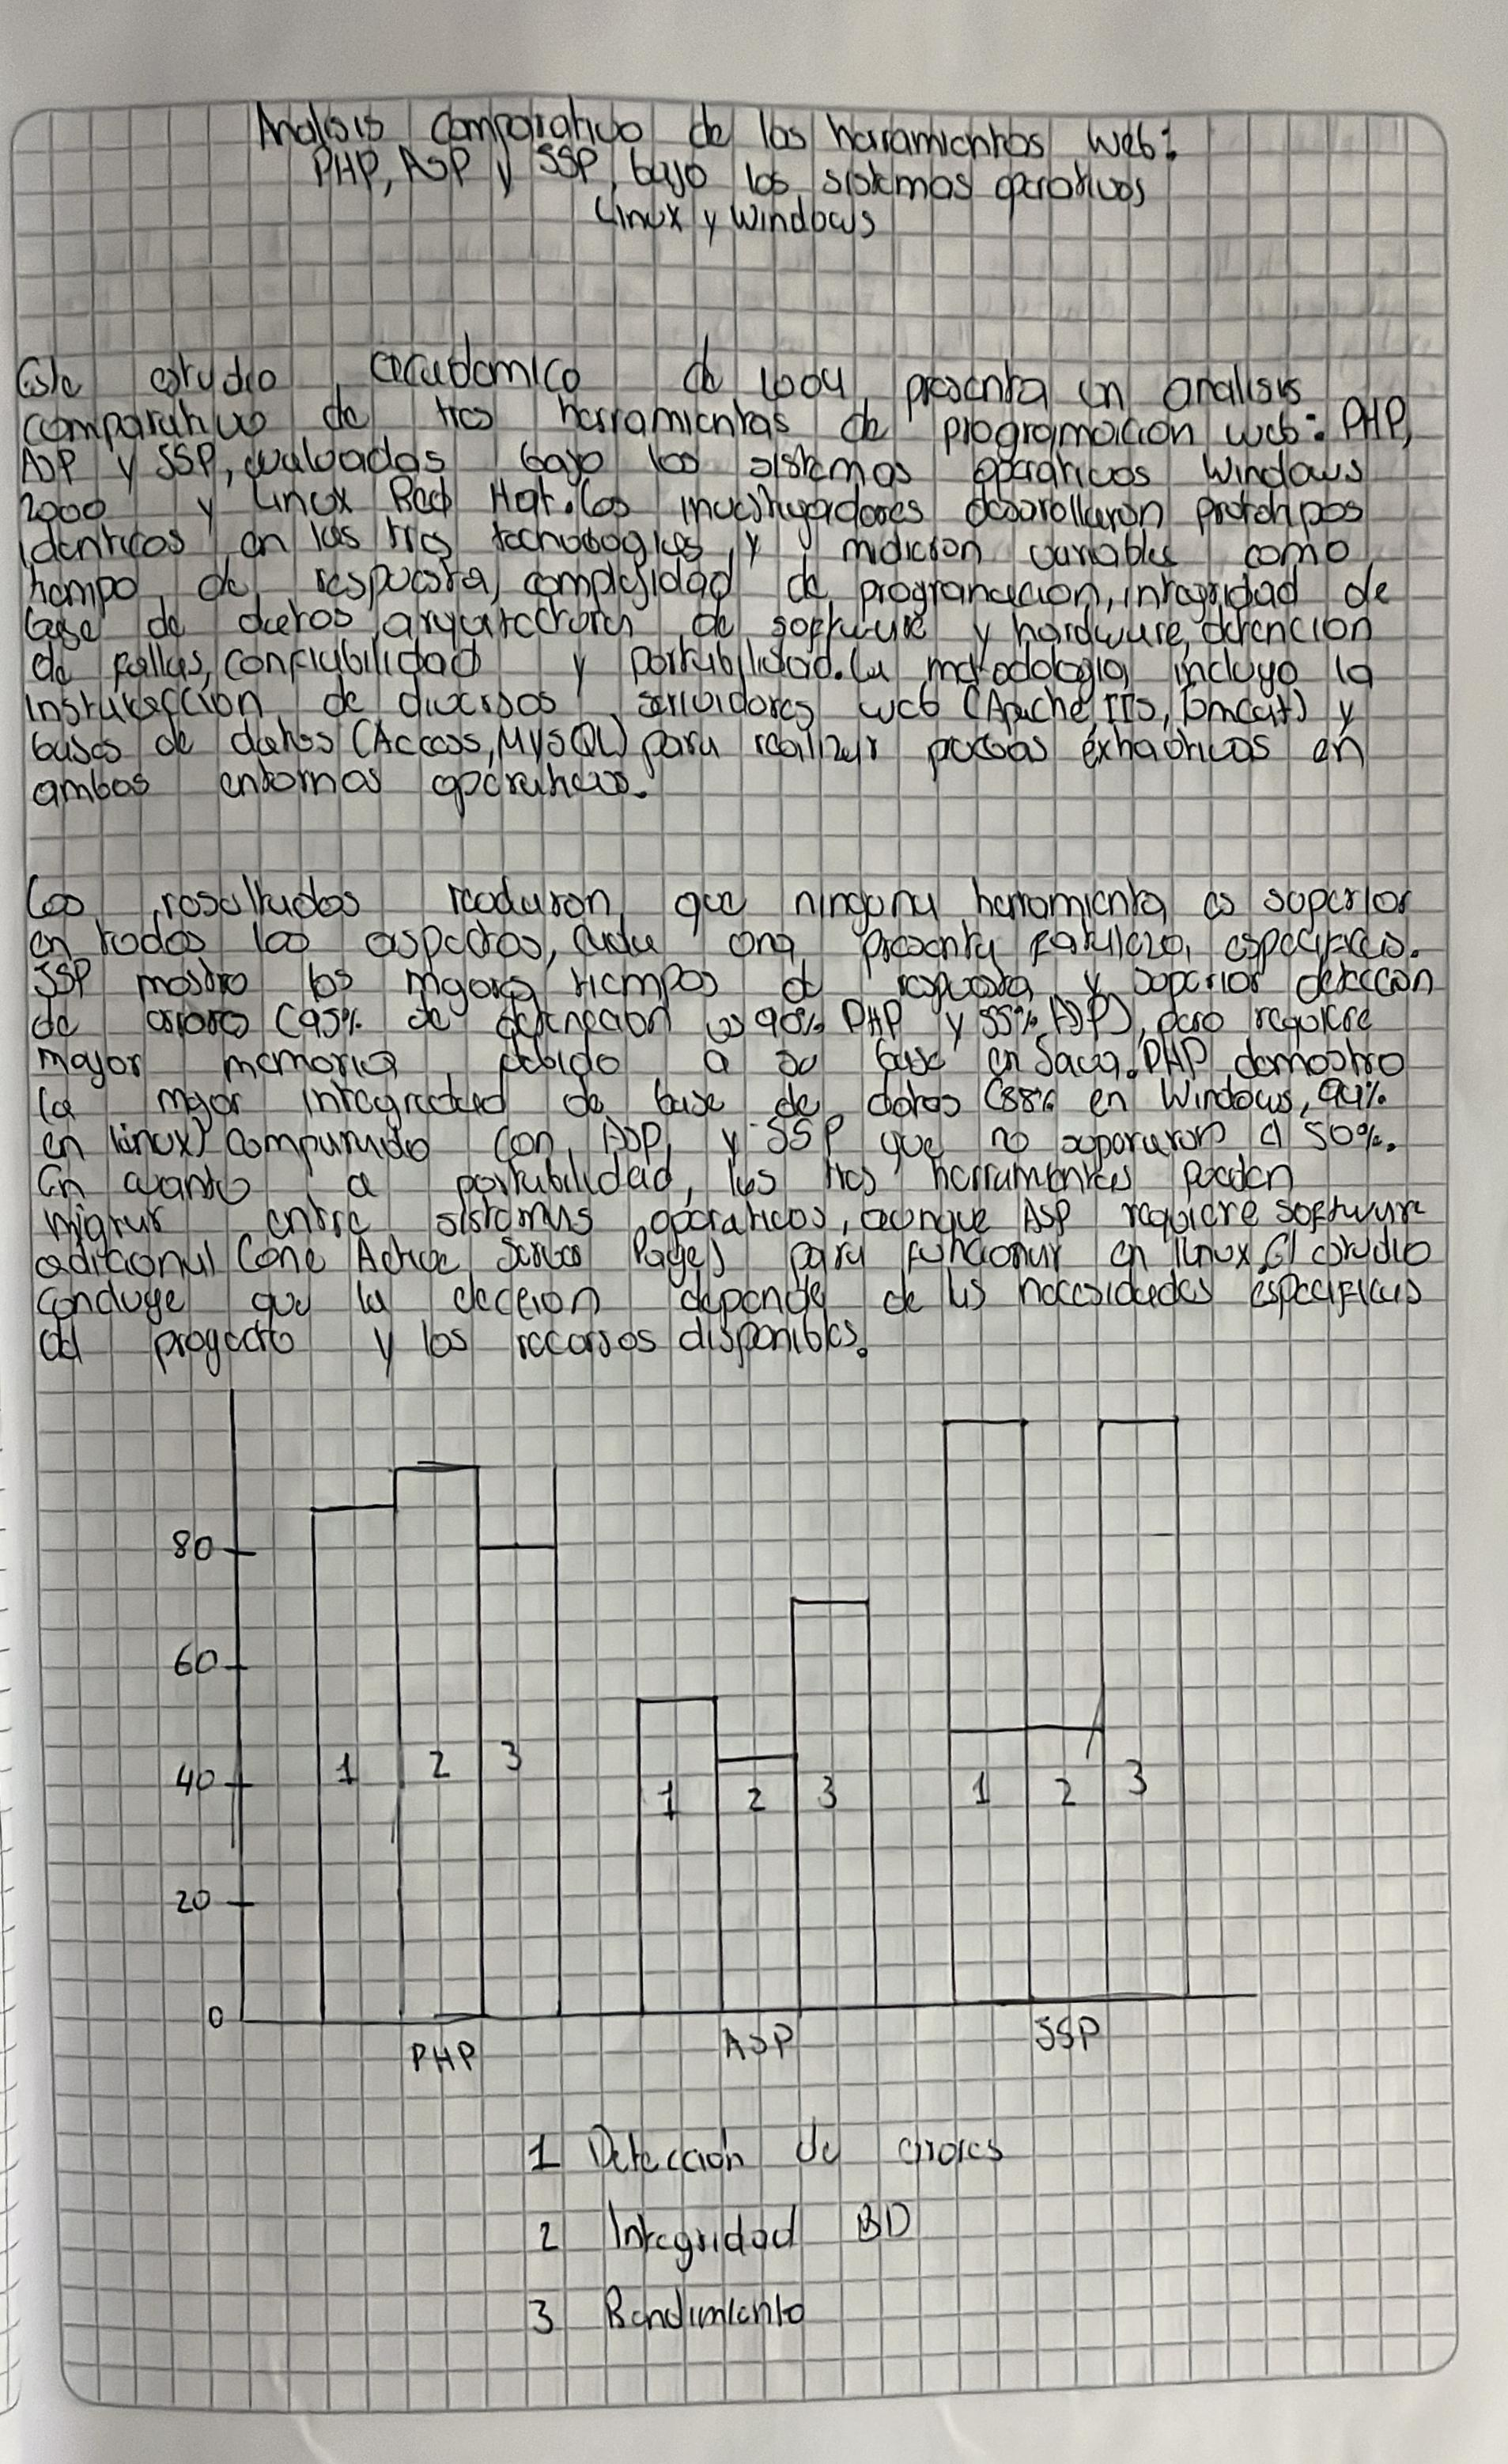 Analisis comparativo de las herramientas web:
PHP, ASP y JSP, bajo los sistemas operativos
Linux y Windows
Este estudio academico de 2004 presenta un analisis
comparativo de tres herramientas de programacion web: PHP,
ASP y JSP, evaluadas bajo los sistemas operativos Windows
2000 y Linux Red Hat. Los investigadores desarrollaron prototipos
identicos en las tres tecnologias y midieron variables como
tiempo de respuesta, complejidad de programacion, integridad de
base de datos, arquitectura de software y hardware, detencion
de fallas, confiabilidad y portabilidad. La metodologia incluyo la
de diversos servidores web (Apache, IIS, Tomcat) y
bases de datos (Access, MySQL) para realizar en
ambos entornos operativos.
Los resultados que ninguna herramienta es superior
en todos los aspectos, cada una presenta especificas.
JSP mostro los mejores tiempos de respuesta y superior deteccion
de errores (95% de vs 90% PHP y 55% ASP), pero requiere
mayor memoria debido a su base en Java. PHP demostro
la mejor integridad de base de datos (88% en Windows, 94%
en Linux) comparado con ASP y JSP que no superaron el 50%.
En cuanto a portabilidad, las tres herramientas pueden
migrar entre sistemas operativos, aunque ASP requiere software
adicional (One Active Server Pages) para funcionar en Linux. El estudio
concluye que la eleccion depende de las necesidades especificas
del proyecto y los recursos disponibles.
80
60
40
20
0
1 2 3
1 2 3
1 2 3
PHP ASP JSP
1 Deteccion de errores
2 Integridad BD
3 Rendimiento